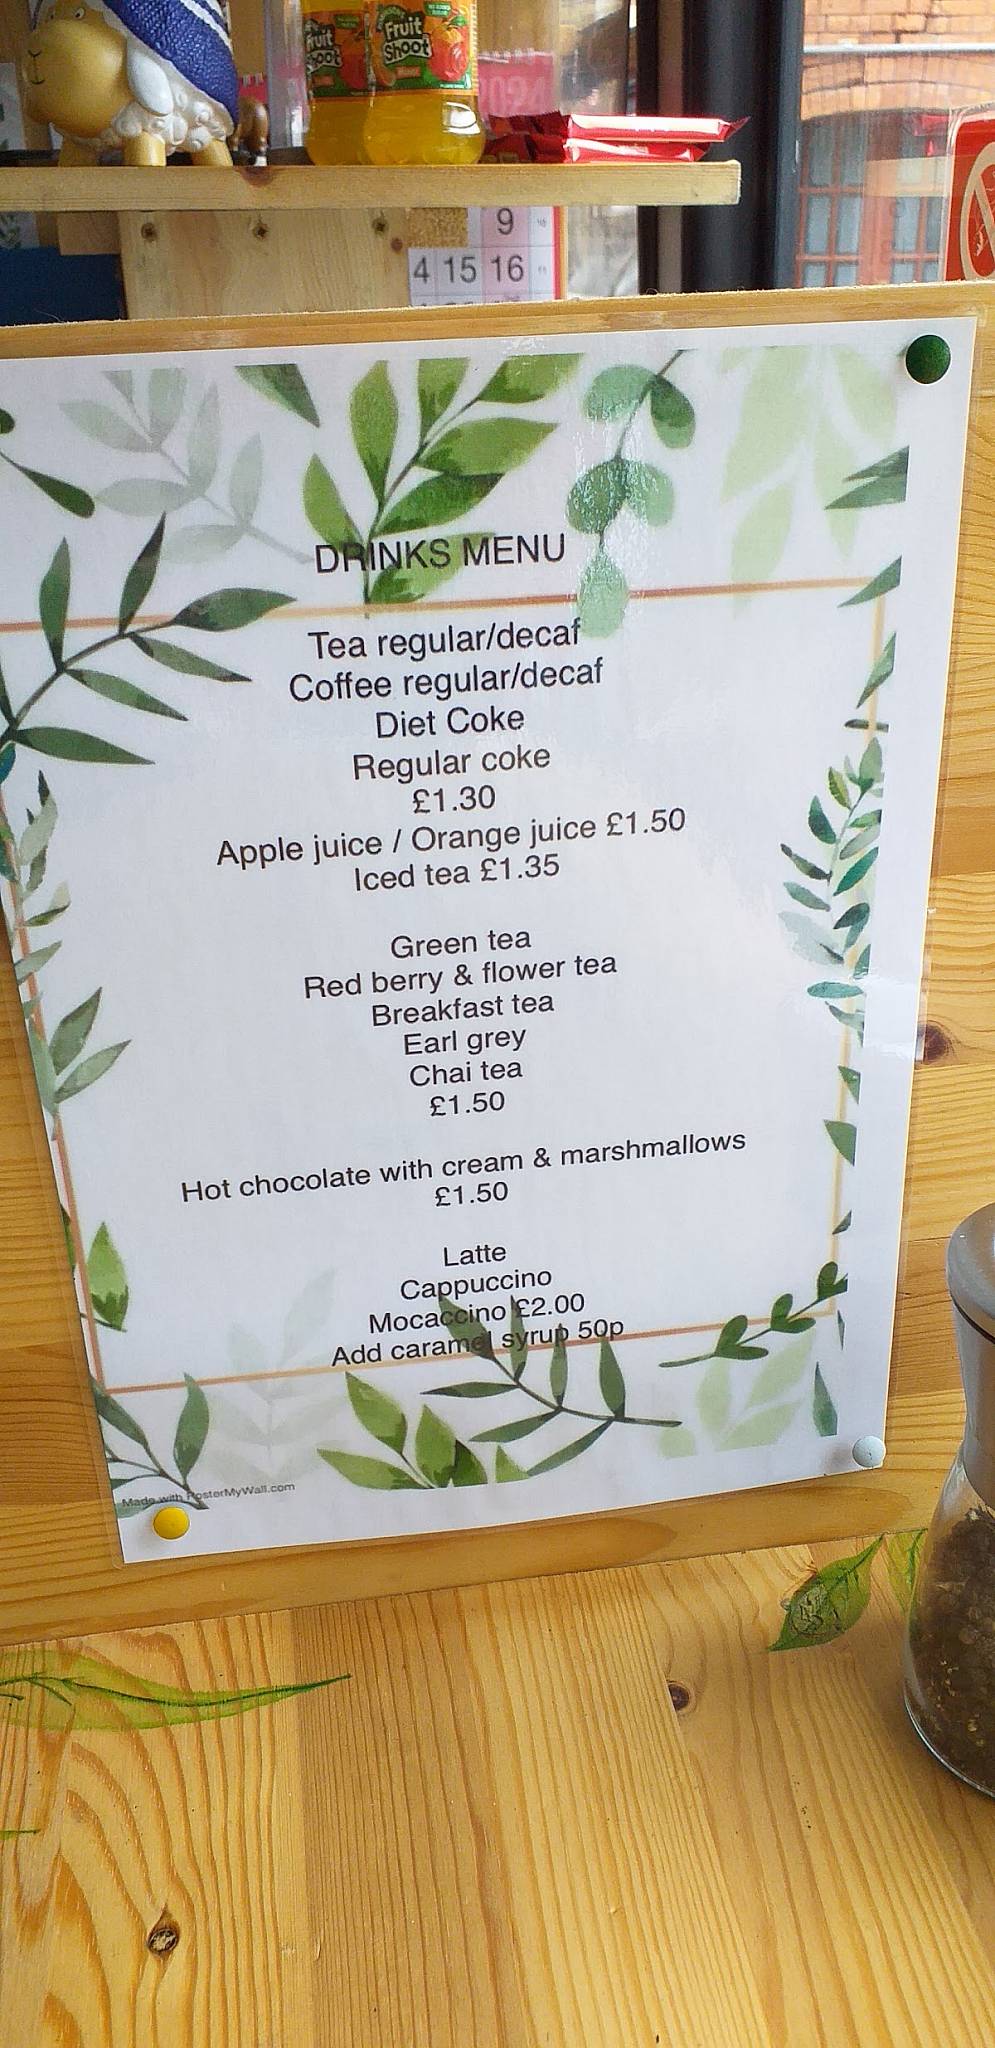 Fruit Shoot
Fruit Shoot
9
4 15 16
DRINKS MENU
Tea regular/decaf
Coffee regular/decaf
Diet Coke
Regular coke
£1.30
Apple juice / Orange juice £1.50
Iced tea £1.35
Green tea
Red berry & flower tea
Breakfast tea
Earl grey
Chai tea
£1.50
Hot chocolate with cream & marshmallows
£1.50
Latte
Cappuccino
Mocaccino £2.00
Add caramel syrup 50p
Made with PosterMyWall.com